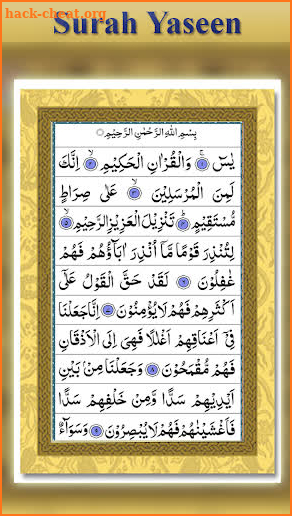 hack-cheat.org
Surah Yaseen
بِسْمِ اللهِ الرَّحْمٰنِ الرَّحِيْمِ
يٰسٓ ۚ‏ ﴿۱﴾ وَالْقُرْاٰنِ الْحَكِيْمِ ﴿۲﴾ اِنَّكَ
لَمِنَ الْمُرْسَلِيْنَ ﴿۳﴾ عَلٰى صِرَاطٍ
مُّسْتَقِيْمٍ ﴿۴﴾ تَنْزِيْلَ الْعَزِيْزِ الرَّحِيْمِ ﴿۵﴾
لِتُنْذِرَ قَوْمًا مَّآ اُنْذِرَ اٰبَآؤُهُمْ فَهُمْ
غٰفِلُوْنَ ﴿۶﴾ لَقَدْ حَقَّ الْقَوْلُ عَلٰٓى
اَكْثَرِهِمْ فَهُمْ لَا يُؤْمِنُوْنَ ﴿۷﴾ اِنَّا جَعَلْنَا
فِيْٓ اَعْنَاقِهِمْ اَغْلٰلًا فَهِىَ اِلَى الْاَذْقَانِ
فَهُمْ مُّقْمَحُوْنَ ﴿۸﴾ وَجَعَلْنَا مِنْۢ بَيْنِ
اَيْدِيْهِمْ سَدًّا وَّمِنْ خَلْفِهِمْ سَدًّا
فَاَغْشَيْنٰهُمْ فَهُمْ لَا يُبْصِرُوْنَ ﴿۹﴾ وَسَوَآءٌ